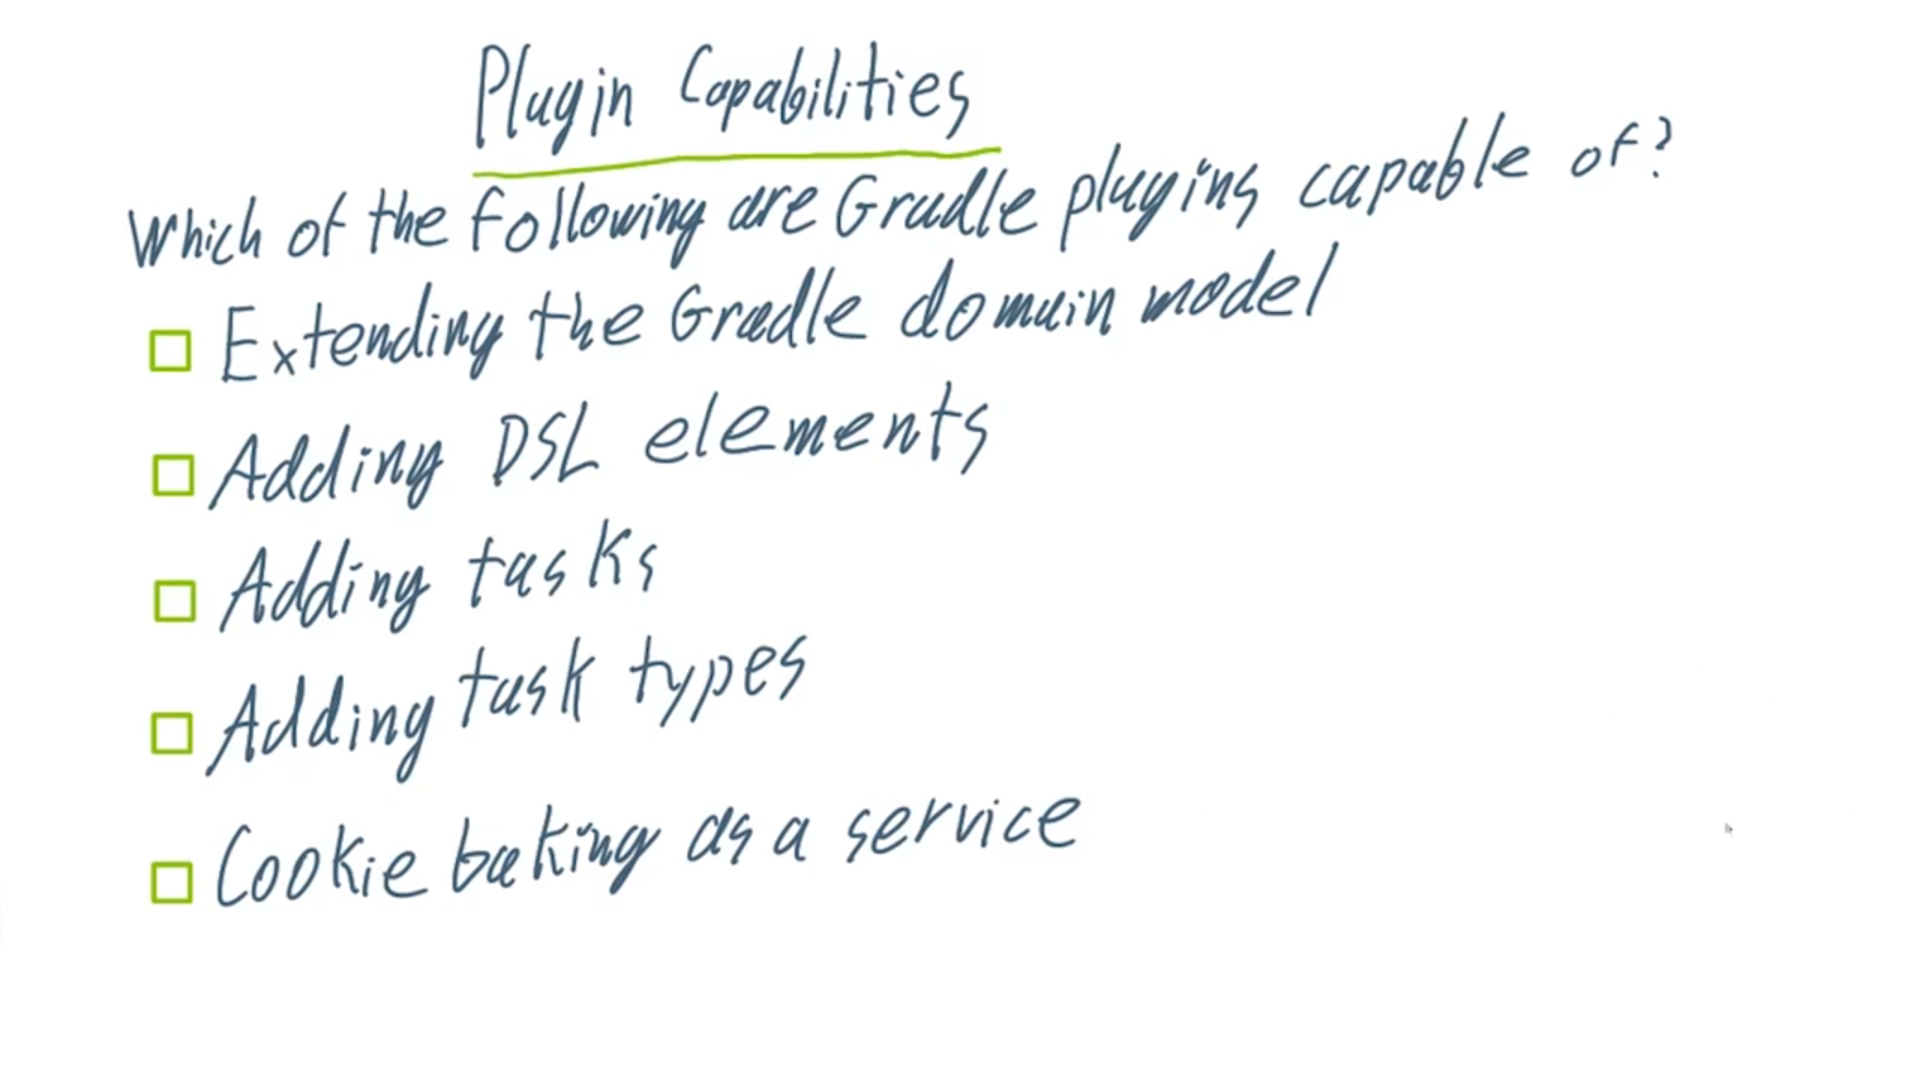 Plugin Capabilities
Which of the following are Gradle plugins capable of?
Extending the Gradle domain model
Adding DSL elements
Adding tasks
Adding task types
Cookie baking as a service